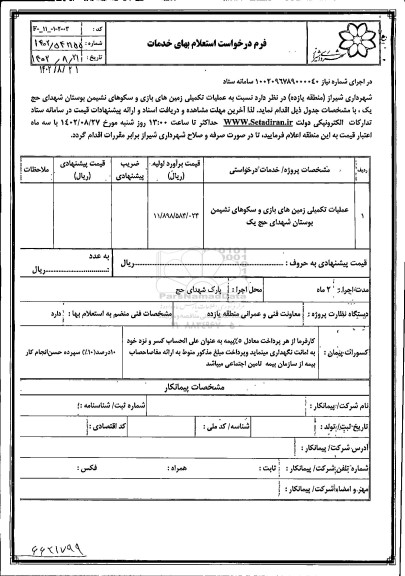 فرم درخواست استعلام بهای خدمات
کد : F۰_۱۱_۰۱۲۰۰۳
شماره :
تاریخ : ۱۴۰۲/۸/۲۱
۱۴۰۲/۸/۲۱
در اجرای شماره نیاز ۱۰۰۲۰۹۶۷۸۹۰۰۰۰۴۰ سامانه ستاد
شهرداری شیراز (منطقه یازده) در نظر دارد نسبت به عملیات تکمیلی زمین های بازی و سکوهای نشیمن بوستان شهدای حج
یک ، با مشخصات جدول ذیل اقدام نماید. لذا آخرین مهلت مشاهده و دریافت اسناد و ارائه پیشنهادات قیمت در سامانه ستاد
تدارکات الکترونیکی دولت WWW.Setadiran.ir حداکثر تا ساعت ۱۳:۰۰ روز شنبه مورخ ۱۴۰۲/۰۸/۲۷ با سه ماه
اعتبار قیمت به این منطقه اعلام فرمایید، تا در صورت صرفه و صلاح شهرداری شیراز برابر مقررات اقدام گردد.
ردیف
مشخصات پروژه/ خدمات درخواستی
قیمت برآورد اولیه (ریال)
ضریب پیشنهادی
قیمت پیشنهادی (ریال)
ملاحظات
۱
عملیات تکمیلی زمین های بازی و سکوهای نشیمن
بوستان شهدای حج یک
۱۱/۸۹۸/۵۸۳/۰۲۳
قیمت پیشنهادی به حروف : ریال
به عدد
ریال
مدت اجرا: ۲ ماه
محل اجرا : پارک شهدای حج
دستگاه نظارت پروژه : معاونت فنی و عمرانی منطقه یازده
مشخصات فنی منضم به استعلام بها : دارد
کسورات پیمان :
کارفرما از هر پرداخت معادل ۵٪ بیمه به عنوان علی الحساب کسر و نزد خود
به امانت نگهداری مینماید وپرداخت مبلغ مذکور منوط به ارائه مفاصاحساب
بیمه از سازمان بیمه تامین اجتماعی میباشد
۱۰درصد(۱۰٪) سپرده حسن انجام کار
مشخصات پیمانکار
نام شرکت/ پیمانکار :
شماره ثبت/ شناسنامه :
تاریخ ثبت/ تولد :
شناسه/ کد ملی :
کد اقتصادی :
آدرس شرکت/ پیمانکار :
شماره تلفن شرکت/ پیمانکار : ثابت :
همراه :
فکس :
مهر و امضاء شرکت/ پیمانکار :
۶۶۲۱۷۹۹